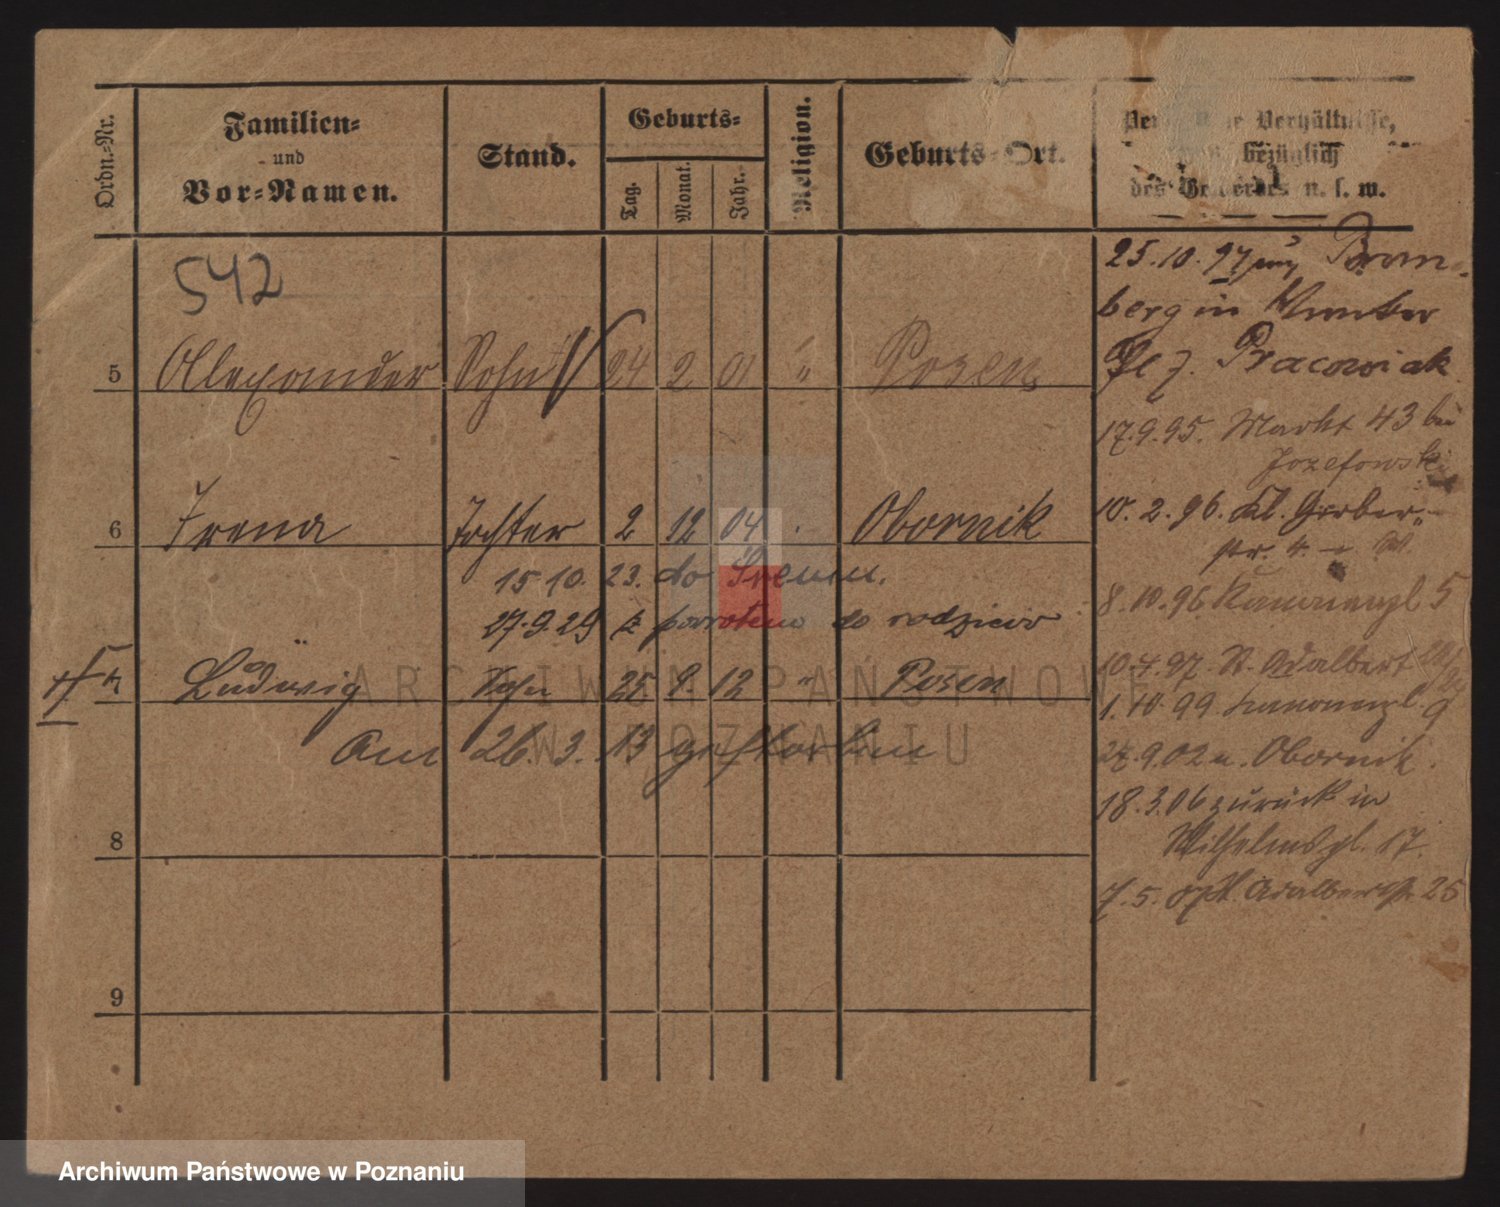 Ordn.-Nr.
Familien-
und
Vor-Namen.
Stand.
Geburts-
Tag.
Monat.
Jahr.
Religion.
Geburts-Ort.
Verhältnisse,
bezüglich
des Gewerbes u. s. w.
542
5 Alexander Sohn 24 2 01 " Posen
6 Irena Tochter 2 12 04 Obornik
15 10. 23. do Śremu.
27.9.29 z powrotem do rodziców
7 Ludwig Sohn 25. 8. 12 " Posen
Am 26. 3. 13 gestorben
8
9
25.10.97 Brom-
berg in
Bez. Pracowiak
17.9.95. Markt 43 bei
Jozefowski
10. 2. 96. Kl. Gerber-
str. 4.
8. 10. 96 Kanonenpl 5
10.4.97. St. Adalbert
1. 10. 99. Kanonenpl. 9
27.9.02 n. Obornik.
18.3.06 zurück in
Wilhelmspl. 17.
7. 5. 07 St. Adalbertstr. 25
ARCHIWUM PAŃSTWOWE
W POZNANIU
Archiwum Państwowe w Poznaniu